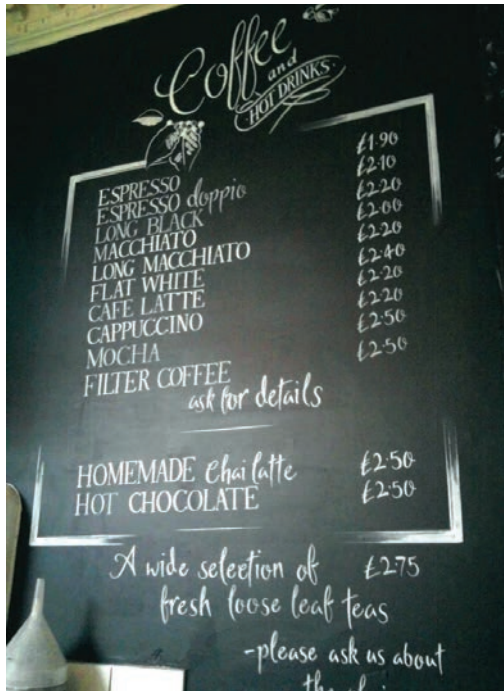 Coffee
and
HOT DRINKS
ESPRESSO £1.90
ESPRESSO doppio £2.10
LONG BLACK £2.20
MACCHIATO £2.00
LONG MACCHIATO £2.20
FLAT WHITE £2.40
CAFE LATTE £2.20
CAPPUCCINO £2.20
MOCHA £2.50
FILTER COFFEE £2.50
ask for details
HOMEMADE Chai latte £2.50
HOT CHOCOLATE £2.50
A wide selection of £2.75
fresh loose leaf teas
-please ask us about